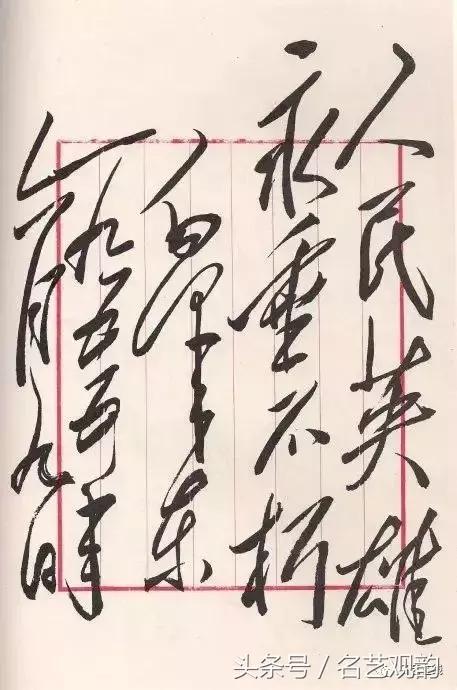 人民英雄
永垂不朽
毛泽东
一九五五年
六月九日
头条号 / 名艺观韵